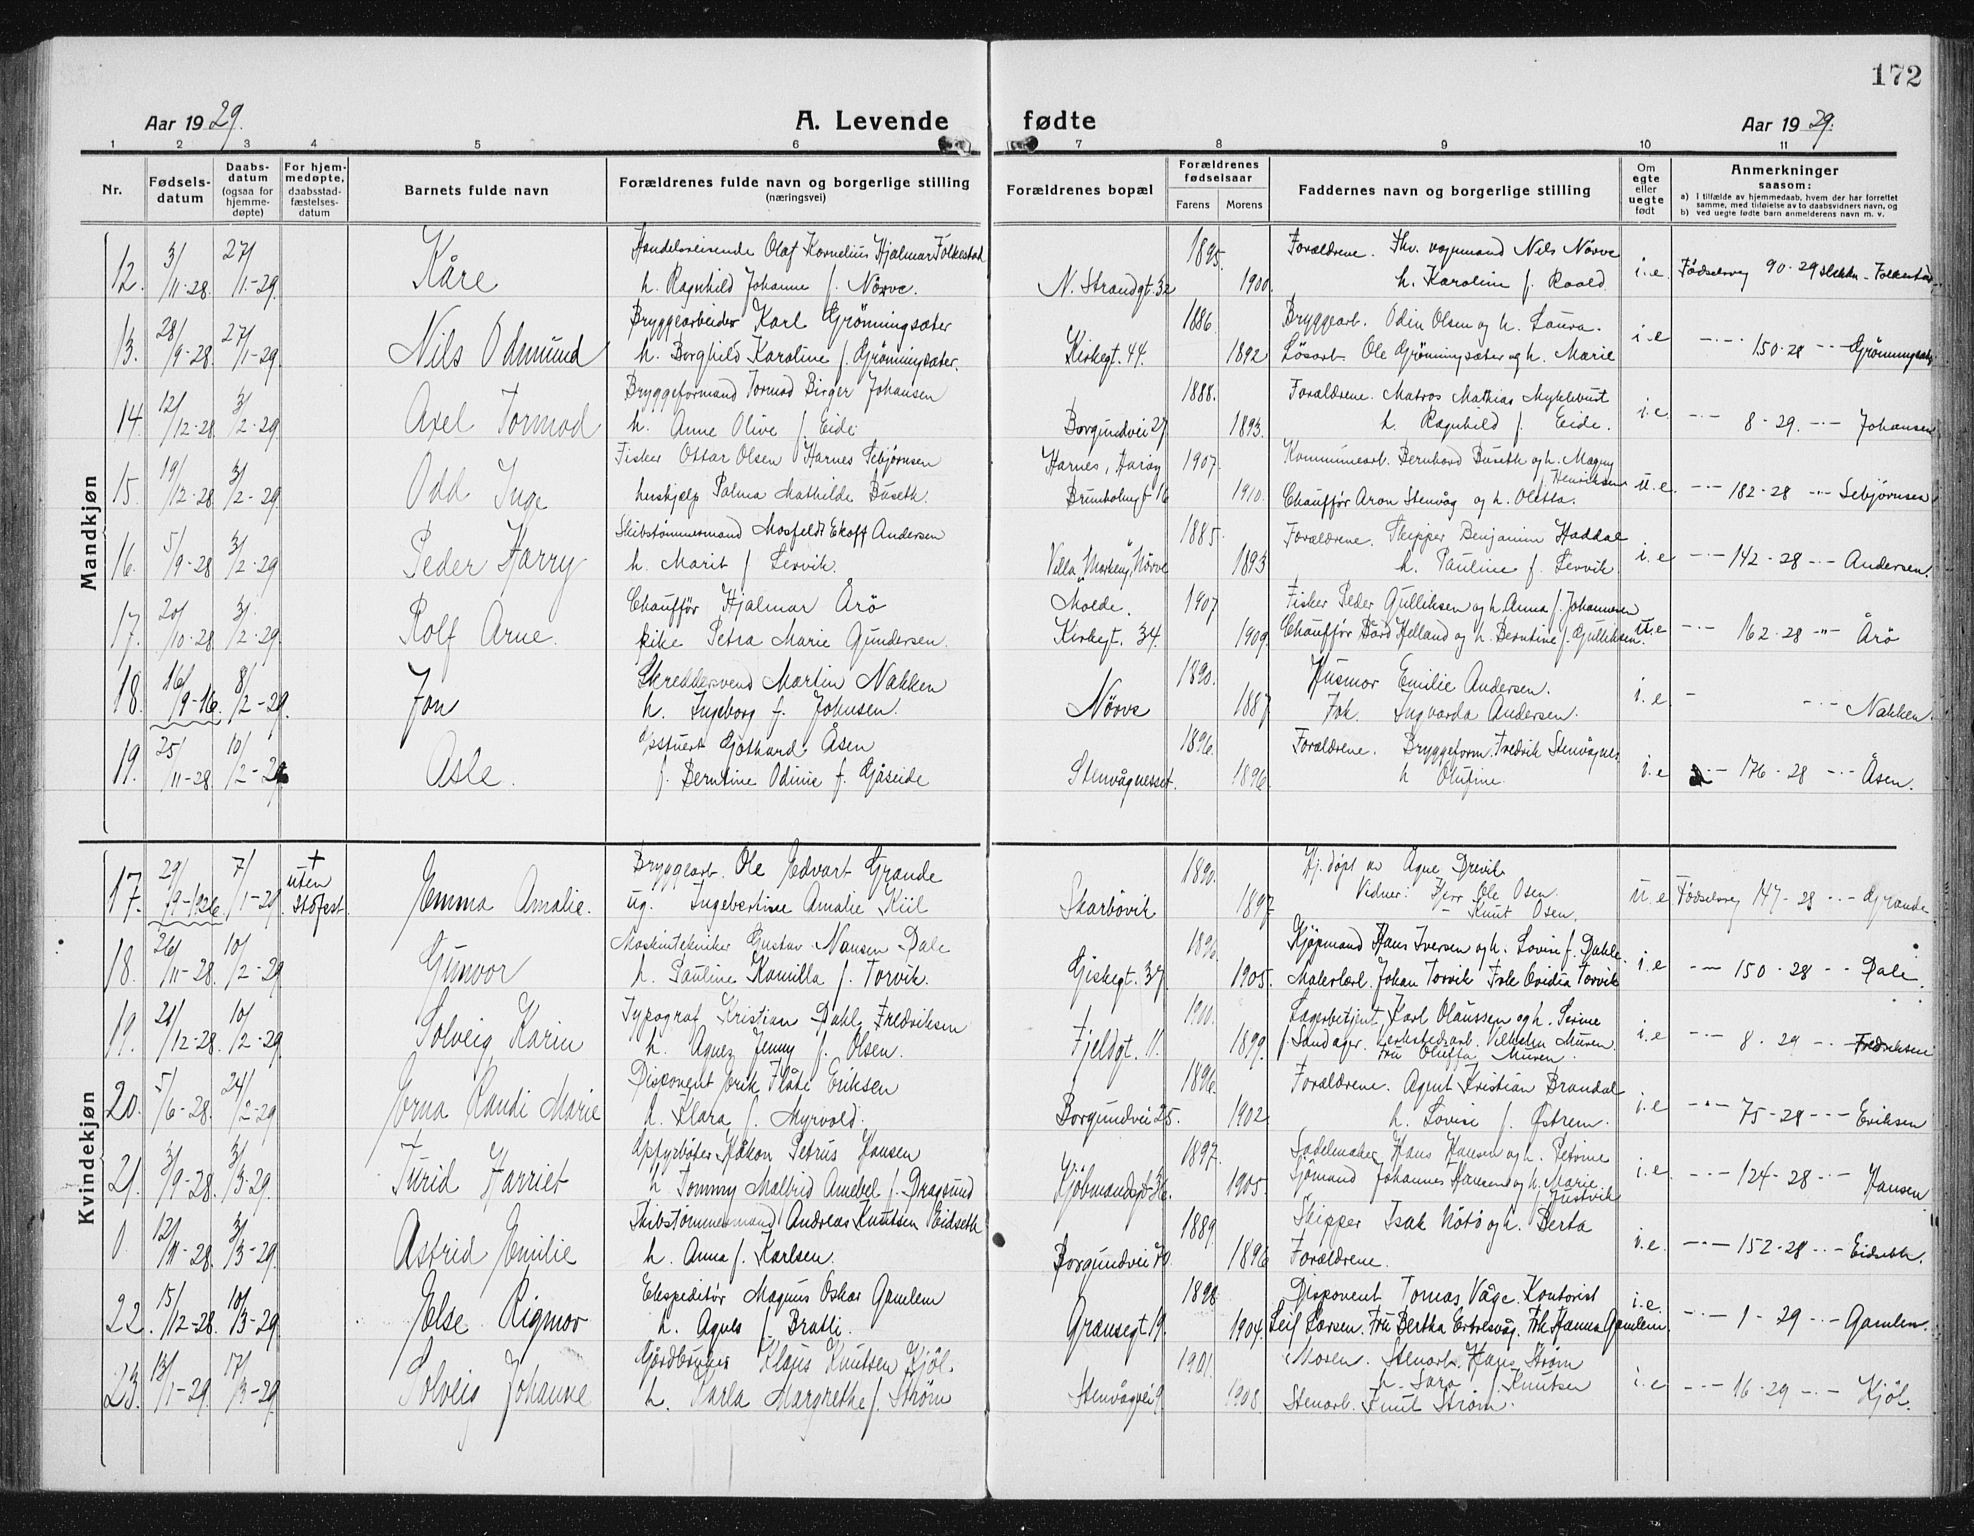 172
Aar 1929.
A. Levende fødte
Aar 1929.
1 2 3 4 5 6 7 8 9 10 11
Nr.
Fødsels-
datum
Daabs-
datum
(ogsaa for
hjemme-
døpte)
For hjem-
medøpte,
daabsstad-
fæstelses-
datum
Barnets fulde navn
Forældrenes fulde navn og borgerlige stilling
(næringsvei)
Forældrenes bopæl
Forældrenes
fødselsaar
Farens Morens
Faddernes navn og borgerlige stilling
Om
egte
eller
uegte
født
Anmerkninger
saasom:
a) I tilfælde av hjemmedaab, hvem der har forrettet
samme, med tilføielse av to daabsvidners navn, og
b) ved uegte fødte barn anmelderens navn m. v.
Mandkjøn
12. 3/11-28. 27/1-29. Kåre
Handelsreisende Olaf Kornelius Hjalmar Folkestad
h. Ragnhild Johanne f. Nörve.
N. Strandgt. 32 1895. 1900.
Forældrene. Fhv. vognmand Nils Nörve
h. Karoline f. Roald
i.e. Fødselsreg 90-29 Folkestad
13. 28/9-28. 27/1-29. Nils Odmund
Bryggearbeider Karl Grönningsæter
h. Borghild Karoline f. Grönningsæter.
Kirkegt. 44. 1886. 1892
Bryggearb. Odin Olsen og h. Laura.
Løsarb. Ole Grönningsæter og h. Marie
i.e -"- 150-28 -"- Grönningsæter
14. 12/12-28. 3/2-29. Axel Tormod
Bryggeformand Tormod Birger Johansen
h. Anne Olive f. Eide
Borgundvei 27 1888. 1893.
Forældrene. Matros Mathias Myklebust
h. Ragnhild f. Eide.
i.e -"- 8-29. -"- Johansen
15. 19/12-28. 3/2-29. Odd Inge
Fisker Ottar Olsen Harnes Sebjørnsen
huskjelp Palma Mathilde Buseth.
Harnes, Harøy 1907. 1910.
Kommunearb. Bernhard Buseth og h. Magny Henriksen
Chauffør Aron Stenvåg og h. Oletta.
u.e. -"- 182-28 -"- Sebjørnsen
16. 5/9-28 3/2-29. Peder Harry
Skibstømmermand Mosfeldt Ekoff Andersen
h. Marit f. Lervik.
Villa "Morteng", Nörve 1885. 1893
Forældrene. Skipper Benjamin Haddal
h. Pauline f. Lervik.
i.e -"- 142-28 -"- Andersen.
17. 20/10-28. 3/2-29. Rolf Arne.
Chauffør Hjalmar Årö
pike Petra Marie Gundersen.
Molde.
Kirkegt. 34. 1907 1909.
Fisker Peder Gulliksen og h. Anna f. Johannesen
Chauffør Bård Helland og h. Berntine f. Gulliksen.
u.e -"- 162-28 -"- Årö
18. 16/9-16. 8/2-29. Jon
Skreddersvend Martin Nakken
h. Ingeborg f. Johnsen.
Nörve 1890. 1887
Husmor Emilie Andersen.
Frk. Ingvarda Andersen.
i.e - -"- Nakken.
19. 25/11-28. 10/2-29 Asle.
Opstuert Gothard Åsen
f. Berntine Odinie f. Gjåseide
Stenvågnesset. 1896. 1896.
Forældrene. Bryggeform. Fredrik Stenvågnes
h Olufine.
i.e -"- 176-28 -"- Åsen.
Kvindekjøn
17. 29/9-1926. 7/1-29 + uten
Stdfest. Emma Amalie.
Bryggearb. Ole Edvart Grande
ug. Ingebertine Amalie Kiil
Skarbövik 1890. 1897
Hj. døpt av Agne Drevik
Vidner: Herr Ole Osen.
- Knut Osen.
u.e Fødselsreg 147-28 -"- Grande
18. 26/11-28. 10/2-29 Gunvor
Maskintekniker Gustav Nansen Dale
h. Pauline Kamilla f. Torvik.
Giskegt. 37. 1896 1905.
Kjøpmand Hans Iversen og h. Lovise f. Dahle.
Malerlærl. Johan Torvik Frk Ovidia Torvik
i.e -"- 150-28 -"- Dale.
19. 21/12-28. 10/2-29. Solveig Karin
Typograf Kristian Dahl Fredriksen
h. Agnez Jenny f. Olsen.
Fjeldgt. 11. 1900. 1899.
Lagerbetjent Karl Olaussen og h. Serine
f. Sandager. Verkstedsarb. Vilhelm Muren.
Fru Oluffa Muren.
i.e -"- 8-29 -"- Fredriksen
20. 5/6-28. 24/2-29 Erna Randi Marie
Disponent Erik Flåte Eriksen
h. Klara f. Myrvold.
Borgundvei 25. 1896. 1902.
Forældrene. Agent Kristian Brandal
h. Lovise f. Østrem.
i.e -"- 75-28 -"- Eriksen
21. 3/9-28. 3/3-29. Turid Harriet
Opfyrbøter Håkon Petrus Hansen
h Tommy Malfrid Annebel f. Dragsund
Kjöbmandsgt. 36. 1897. 1905.
Sadelmaker Hans Hansen og h. Petrine
Sjömand Johannes Hansen og h. Marie
Justvik
i.e. -"- 124-28 -"- Hansen
0 12/11-28. 3/3-29. Astrid Emilie
Skibstømmermand Andreas Knutsen Eidseth
h. Anna f. Karlsen.
Borgundvei 70. 1889. 1896
Skipper Isak Nötö og h. Berta
Forældrene.
i.e. -"- 152-28 -"- Eidseth.
22. 15/12-28. 10/3-29. Else Rigmor
Ekspeditör Magnus Oskar Gamlem
h. Agnes f. Bratli.
Grænsegt. 19. 1898 1904.
Disponent Tomas Våge. Kontorist
Leif Larsen. Fru Bertha Ertresvåg. Frk Hanna Gamlem.
i.e. -"- 1-29 -"- Gamlem.
23. 13/1-29. 17/3-29. Solveig Johanne
Gårdbruker Klaus Knutsen Kjöl.
h. Karla Margrethe f. Ström
Stenvågvei 9 1901. 1908.
Moren. Stenarb. Hans Ström
h. Sara f. Knutsen
Stenarb. Knut Ström.
i.e -"- 16-29 -"- Kjöl.